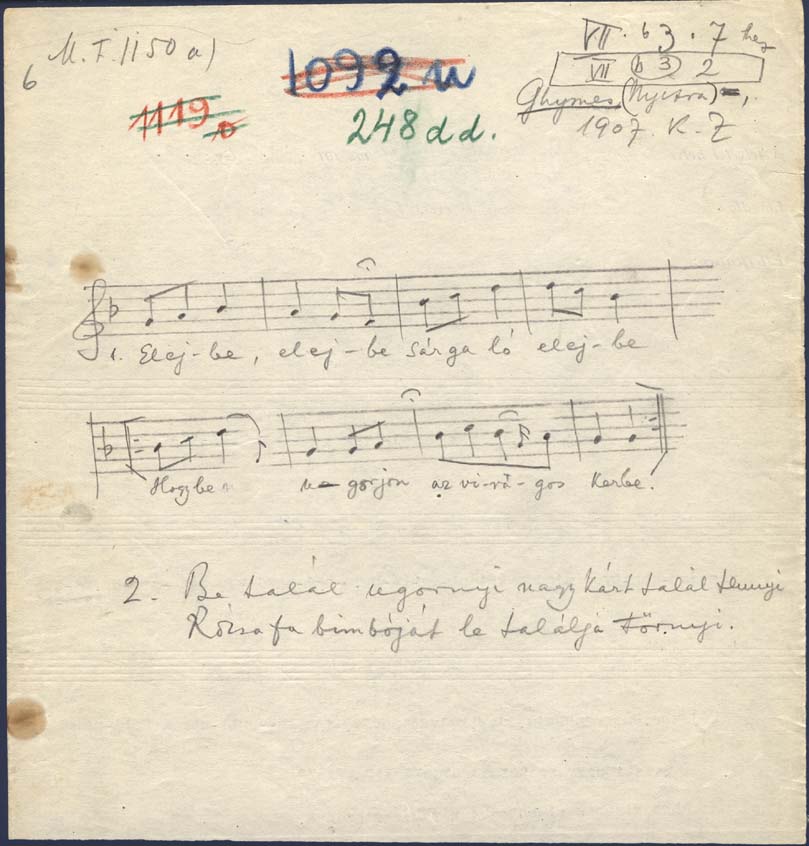 M.F. 1150 a)
6
1092 u
1119 o
248 dd.
VII. b 3. 7 hez
VII b 3 2
Ghymes (Nyitra)
1907. K. Z
1. Elej-be, elej-be Sárga ló elej-be
Hogy be u-gorjon az vi-rá-gos kerbe.
2. Be talál ugornyi nagy kárt talál tennyi
Rózsafa bimbóját le találja törnyi.